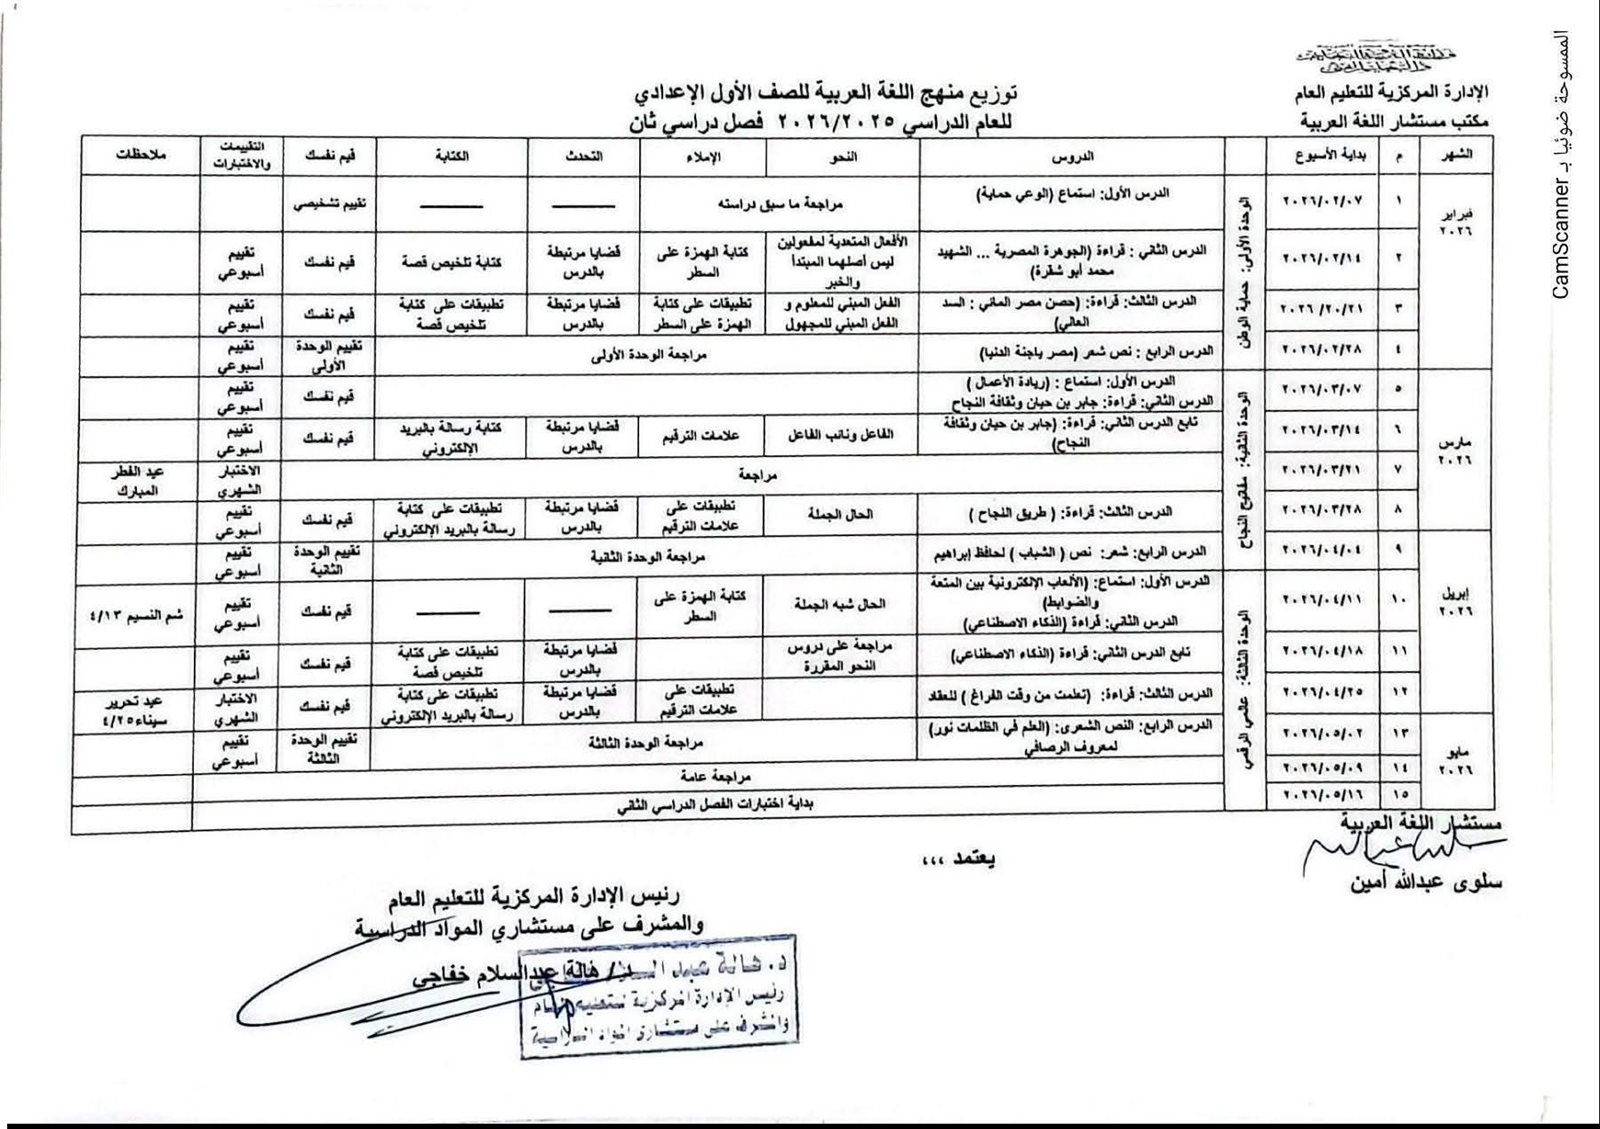 الممسوحة ضوئيا بـ CamScanner
الإدارة المركزية للتعليم العام
مكتب مستشار اللغة العربية
توزيع منهج اللغة العربية للصف الأول الإعدادي
للعام الدراسي ٢٠٢٦/٢٠٢٥ فصل دراسي ثان
الشهر م بداية الأسبوع الدروس النحو الإملاء التحدث الكتابة قيم نفسك التقييمات والاختبارات ملاحظات
فبراير ٢٠٢٦
الوحدة الأولى: حماية الوطن
١ ٢٠٢٦/٠٢/٠٧ الدرس الأول: استماع (الوعي حماية) مراجعة ما سبق دراسته تقييم تشخيصي
٢ ٢٠٢٦/٠٢/١٤ الدرس الثاني : قراءة (الجوهرة المصرية ... الشهيد محمد أبو شقرة) الأفعال المتعدية لمفعولين ليس أصلهما المبتدأ والخبر كتابة الهمزة على السطر قضايا مرتبطة بالدرس كتابة تلخيص قصة قيم نفسك تقييم أسبوعي
٣ ٢٠٢٦/٢٠/٢١ الدرس الثالث: قراءة: (حصن مصر المائي : السد العالي) الفعل المبني للمعلوم و الفعل المبني للمجهول تطبيقات على كتابة الهمزة على السطر قضايا مرتبطة بالدرس تطبيقات على كتابة تلخيص قصة قيم نفسك تقييم أسبوعي
٤ ٢٠٢٦/٠٢/٢٨ الدرس الرابع : نص شعر (مصر ياجنة الدنيا) مراجعة الوحدة الأولى تقييم الوحدة الأولى تقييم أسبوعي
مارس ٢٠٢٦
الوحدة الثانية: مفاتيح النجاح
٥ ٢٠٢٦/٠٣/٠٧ الدرس الأول: استماع : (ريادة الأعمال ) الدرس الثاني: قراءة: جابر بن حيان وثقافة النجاح قيم نفسك تقييم أسبوعي
٦ ٢٠٢٦/٠٣/١٤ تابع الدرس الثاني: قراءة: (جابر بن حيان وثقافة النجاح) الفاعل ونائب الفاعل علامات الترقيم قضايا مرتبطة بالدرس كتابة رسالة بالبريد الإلكتروني قيم نفسك تقييم أسبوعي
٧ ٢٠٢٦/٠٣/٢١ مراجعة الاختبار الشهري عيد الفطر المبارك
٨ ٢٠٢٦/٠٣/٢٨ الدرس الثالث: قراءة: ( طريق النجاح ) الحال الجملة تطبيقات على علامات الترقيم قضايا مرتبطة بالدرس تطبيقات على كتابة رسالة بالبريد الإلكتروني قيم نفسك تقييم أسبوعي
إبريل ٢٠٢٦
٩ ٢٠٢٦/٠٤/٠٤ الدرس الرابع: شعر: نص ( الشباب ) لحافظ إبراهيم مراجعة الوحدة الثانية تقييم الوحدة الثانية تقييم أسبوعي
الوحدة الثالثة: عالمي الرقمي
١٠ ٢٠٢٦/٠٤/١١ الدرس الأول: استماع: (الألعاب الإلكترونية بين المتعة والضوابط) الدرس الثاني: قراءة (الذكاء الاصطناعي) الحال شبه الجملة كتابة الهمزة على السطر قيم نفسك تقييم أسبوعي شم النسيم ٤/١٣
١١ ٢٠٢٦/٠٤/١٨ تابع الدرس الثاني: قراءة (الذكاء الاصطناعي) مراجعة على دروس النحو المقررة قضايا مرتبطة بالدرس تطبيقات على كتابة تلخيص قصة قيم نفسك تقييم أسبوعي
١٢ ٢٠٢٦/٠٤/٢٥ الدرس الثالث: قراءة: (تعلمت من وقت الفراغ ) للعقاد تطبيقات على علامات الترقيم قضايا مرتبطة بالدرس تطبيقات على كتابة رسالة بالبريد الإلكتروني قيم نفسك الاختبار الشهري عيد تحرير سيناء ٤/٢٥
مايو ٢٠٢٦
١٣ ٢٠٢٦/٠٥/٠٢ الدرس الرابع: النص الشعرى: (العلم في الظلمات نور) لمعروف الرصافي مراجعة الوحدة الثالثة تقييم الوحدة الثالثة تقييم أسبوعي
١٤ ٢٠٢٦/٠٥/٠٩ مراجعة عامة
١٥ ٢٠٢٦/٠٥/١٦ بداية اختبارات الفصل الدراسي الثاني
مستشار اللغة العربية
سلوى عبدالله أمين
يعتمد ،،،
رئيس الإدارة المركزية للتعليم العام
والمشرف على مستشاري المواد الدراسية
د/ هالة عبدالسلام خفاجي
د. هالة عبد السلام
رئيس الإدارة المركزية للتعليم العام
والمشرف على مستشارى المواد الدراسية